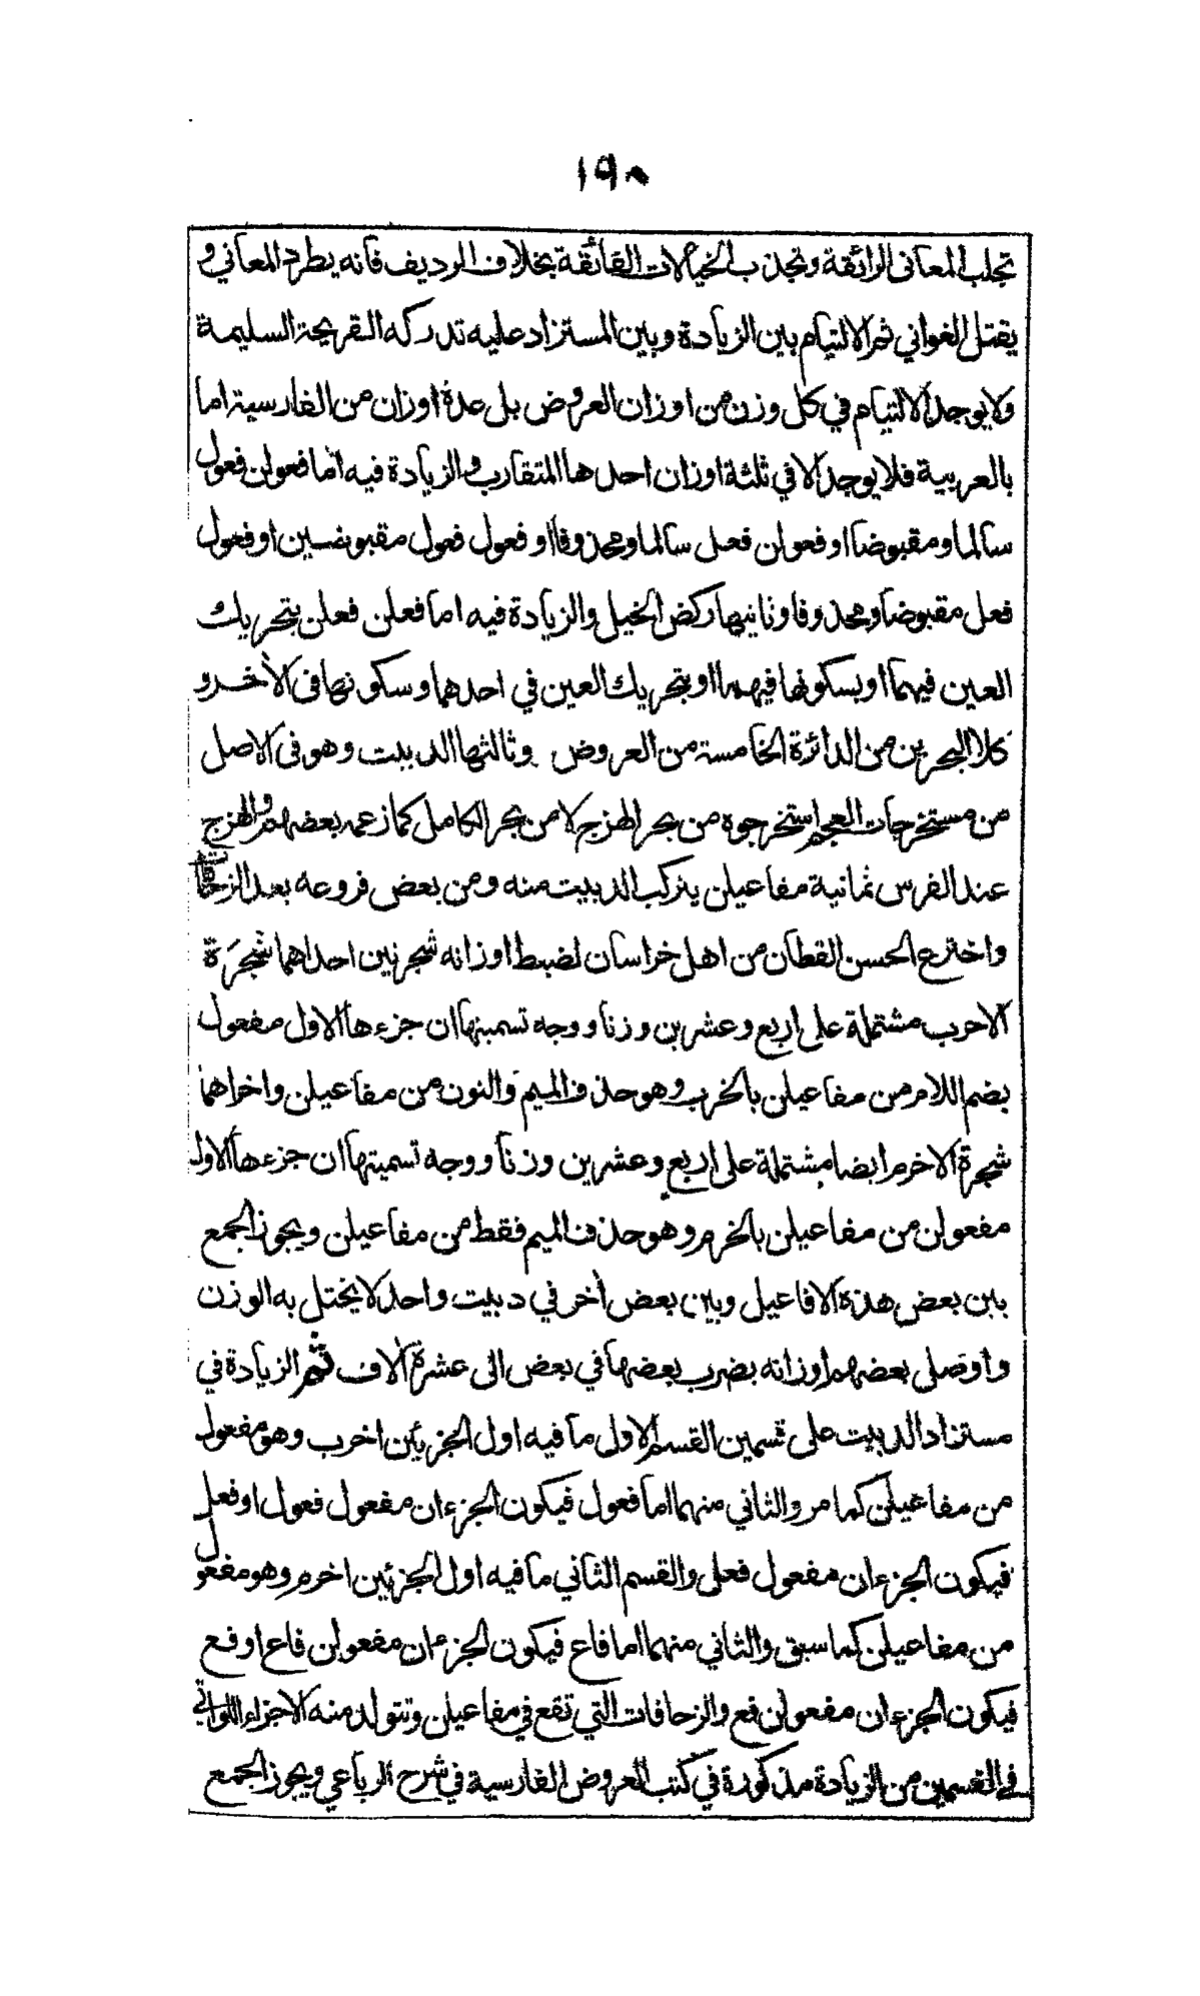 ١٩٠
تجلب المعاني الرائقة وتجذب الخيالات الفائقة بخلاف الرديف فانه يطرد المعاني و
يقتل الغواني ثم الالتيام بين الزيادة وبين المستزاد عليه تدركه القريحة السليمة
ولا يوجد الالتيام في كل وزن من اوزان العروض بل عدة اوزان من الفارسية اما
بالعربية فلا يوجد الا في ثلثة اوزان احدها المتقارب والزيادة فيه اما فعولن فعول
سالما ومقبوضا او فعولن فعل سالما ومحذوفا او فعول فعول مقبوضين او فعول
فعل مقبوضا ومحذوفا وثانيها ركض الخيل والزيادة فيه اما فعلن فعلن بتحريك
العين فيهما او بسكونها فيهما او بتحريك العين في احدهما وسكونها في الأخر و
كلا البحرين من الدائرة الخامسة من العروض وثالثها الدبيت وهو في الاصل
من مستخرجات العجم استخرجوه من بحر الهزج لا من بحر الكامل كما زعمه بعضهم والهزج
عند الفرس ثمانية مفاعيلن يتركب الدبيت منه ومن بعض فروعه بعد الزحافات
واخترع الحسن القطان من اهل خراسان لضبط اوزانه شجرتين احداهما شجرة
الاخرب مشتملة على اربع وعشرين وزنا ووجه تسميتها ان جزءها الاول مفعول
بضم اللام من مفاعيلن بالخرب وهو حذف الميم والنون من مفاعيلن واخراهما
شجرة الاخرم ايضا مشتملة على اربع وعشرين وزنا ووجه تسميتها ان جزءها الاول
مفعولن من مفاعيلن بالخرم وهو حذف الميم فقط من مفاعيلن ويجوز الجمع
بين بعض هذه الافاعيل وبين بعض أخر في دبيت واحد لا يختل به الوزن
واوصل بعضهم اوزانه بضرب بعضها في بعض الى عشرة ألاف ثم الزيادة في
مستزاد الدبيت على قسمين القسم الاول ما فيه اول الجزئين اخرب وهو مفعول
من مفاعيلن كما مر والثاني منهما اما فعول فيكون الجزءان مفعول فعول او فعل
فيكون الجزءان مفعول فعل والقسم الثاني ما فيه اول الجزئين اخرم وهو مفعولن
من مفاعيلن كما سبق والثاني منهما اما فاع فيكون الجزءان مفعولن فاع او فع
فيكون الجزءان مفعولن فع والزحافات التي تقع في مفاعيلن وتتولد منه الاجزاء اللواتي
في القسمين من الزيادة مذكورة في كتب العروض الفارسية في شرح الرباعي ويجوز الجمع